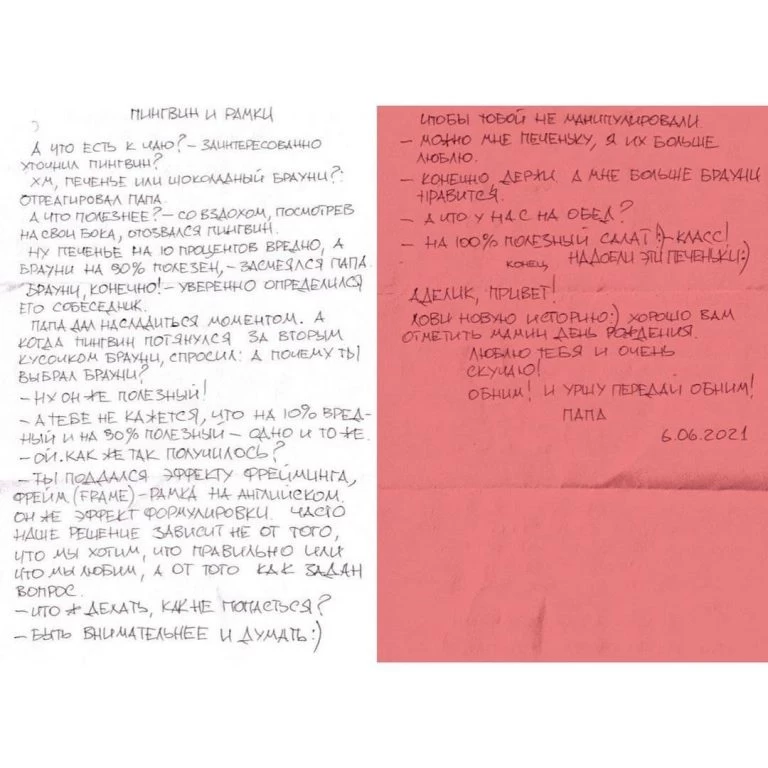 ПИНГВИН И РАМКИ
А ЧТО ЕСТЬ К ЧАЮ? – ЗАИНТЕРЕСОВАННО
УТОЧНИЛ ПИНГВИН?
ХМ, ПЕЧЕНЬЕ ИЛИ ШОКОЛАДНЫЙ БРАУНИ?:
ОТРЕАГИРОВАЛ ПАПА.
А ЧТО ПОЛЕЗНЕЕ? – СО ВЗДОХОМ, ПОСМОТРЕВ
НА СВОИ БОКА, ОТОЗВАЛСЯ ПИНГВИН.
НУ ПЕЧЕНЬЕ НА 10 ПРОЦЕНТОВ ВРЕДНО, А
БРАУНИ НА 90% ПОЛЕЗЕН, – ЗАСМЕЯЛСЯ ПАПА.
БРАУНИ, КОНЕЧНО! – УВЕРЕННО ОПРЕДЕЛИЛСЯ
ЕГО СОБЕСЕДНИК.
ПАПА ДАЛ НАСЛАДИТЬСЯ МОМЕНТОМ. А
КОГДА ПИНГВИН ПОТЯНУЛСЯ ЗА ВТОРЫМ
КУСОЧКОМ БРАУНИ, СПРОСИЛ: А ПОЧЕМУ ТЫ
ВЫБРАЛ БРАУНИ?
– НУ ОН ЖЕ ПОЛЕЗНЫЙ!
– А ТЕБЕ НЕ КАЖЕТСЯ, ЧТО НА 10% ВРЕД-
НЫЙ И НА 90% ПОЛЕЗНЫЙ – ОДНО И ТО ЖЕ.
– ОЙ. КАК ЖЕ ТАК ПОЛУЧИЛОСЬ?
– ТЫ ПОДДАЛСЯ ЭФФЕКТУ ФРЕЙМИНГА,
ФРЕЙМ (FRAME) – РАМКА НА АНГЛИЙСКОМ.
ОН ЖЕ ЭФФЕКТ ФОРМУЛИРОВКИ. ЧАСТО
НАШЕ РЕШЕНИЕ ЗАВИСИТ НЕ ОТ ТОГО,
ЧТО МЫ ХОТИМ, ЧТО ПРАВИЛЬНО ИЛИ
ЧТО МЫ ЛЮБИМ, А ОТ ТОГО КАК ЗАДАН
ВОПРОС.
– ЧТО Ж ДЕЛАТЬ, КАК НЕ ПОПАСТЬСЯ?
– БЫТЬ ВНИМАТЕЛЬНЕЕ И ДУМАТЬ :)
ЧТОБЫ ТОБОЙ НЕ МАНИПУЛИРОВАЛИ.
– МОЖНО МНЕ ПЕЧЕНЬКУ, Я ИХ БОЛЬШЕ
ЛЮБЛЮ.
– КОНЕЧНО ДЕРЖИ. А МНЕ БОЛЬШЕ БРАУНИ
НРАВИТСЯ.
– А ЧТО У НАС НА ОБЕД?
– НА 100% ПОЛЕЗНЫЙ САЛАТ :) – КЛАСС!
КОНЕЦ НАДОЕЛИ ЭТИ ПЕЧЕНЬКИ :)
АДЕЛИК, ПРИВЕТ!
ЛОВИ НОВУЮ ИСТОРИЮ :) ХОРОШО ВАМ
ОТМЕТИТЬ МАМИН ДЕНЬ РОЖДЕНИЯ.
ЛЮБЛЮ ТЕБЯ И ОЧЕНЬ
СКУЧАЮ!
ОБНИМ! И УРШУ ПЕРЕДАЙ ОБНИМ!
ПАПА
6.06.2021